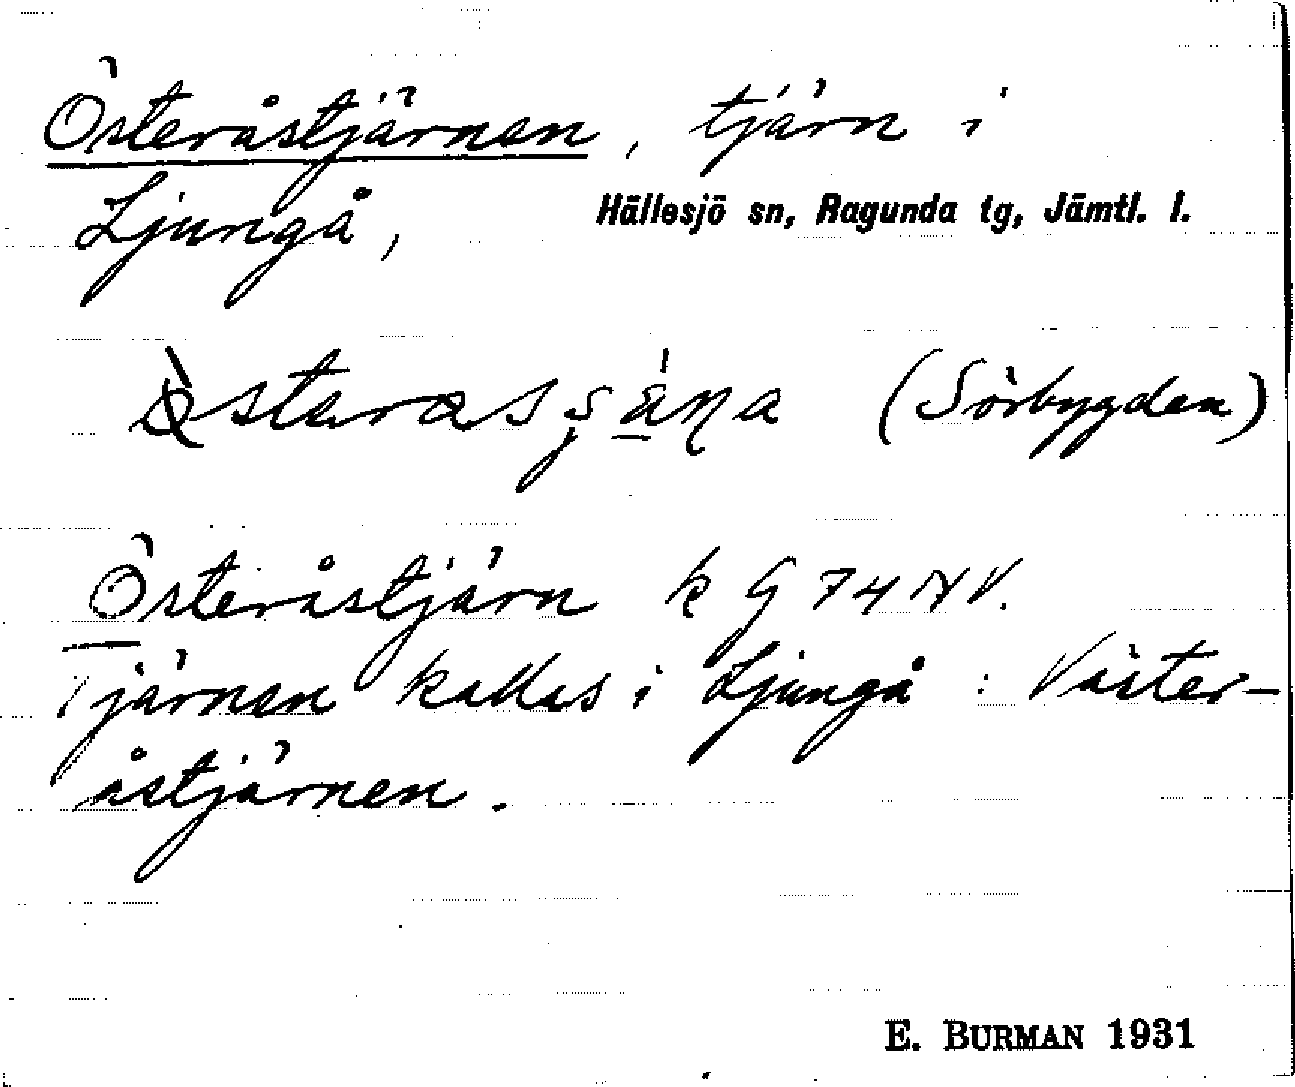 Österåstjärnen, tjärn i
Ljungå, Hällesjö sn, Ragunda tg, Jämtl. l.
(Sörbygden)
Österåstjärn k G 74 NV.
Tjärnen kallas i Ljungå : Väster-
åstjärnen.
E. BURMAN 1931